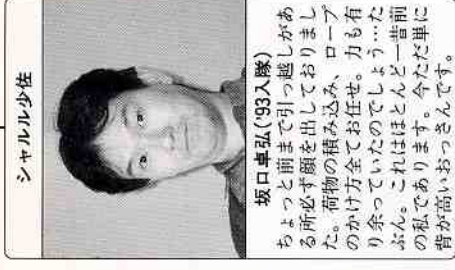 シャルル少佐
坂口卓弘('93入隊)
ちょっと前まで引っ越しがあ
る所必ず顔を出しておりまし
た。荷物の積み込み、ロープ
のかけ方全てお任せ。力も有
り余っていたのでしょう…た
ぶん。これはほとんど一昔前
の私であります。今ただ単に
背が高いおっさんです。